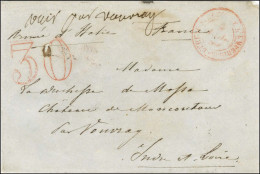 voir par Vouvray
Armée d'Italie France
30
Madame
la duchesse de Massa
Château de Moncontour
par Vouvray
Indre et Loire